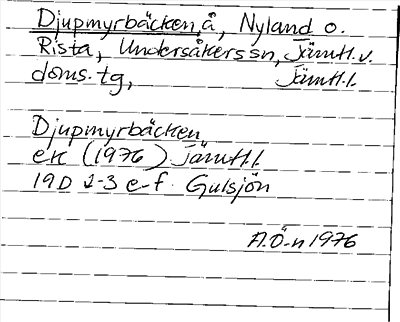 Djupmyrbäcken, å, Nyland o.
Rista, Undersåkers sn, Jämtl. v.
doms. tg, Jämtl. l.
Djupmyrbäcken
ek (1976) Jämtl. l.
19D 2-3 e-f Gulsjön
A.Ö-n 1976